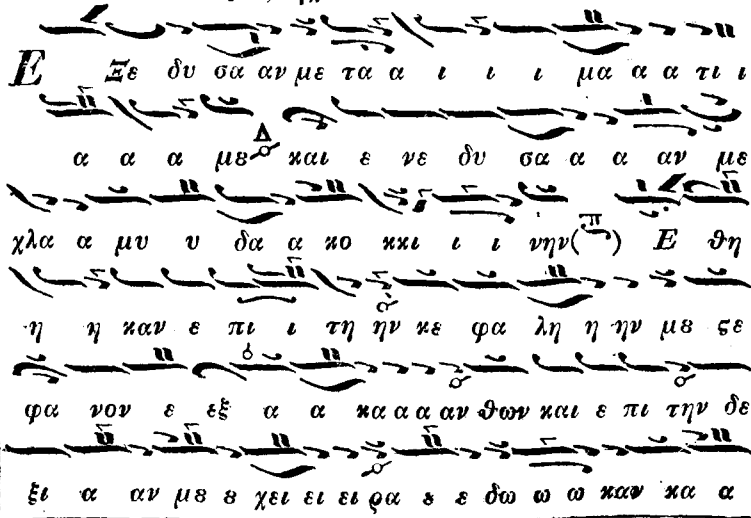 Ε Ξε δυ σα αν με τα α ι ι ι μα α α τι ι
α α α μȣ Δ και ε νε δυ σα α α αν με
χλα α μυ υ δα α κο κκι ι ι νην (π) Ε θη
η η καν ε πι ι τη ην κε φα λη η ην μȣ ϛε
φα νον ε εξ α α κα α α αν θων και ε πι την δε
ξι α αν μȣ ȣ χει ει ει ρα ε ε δω ω ω καν κα α